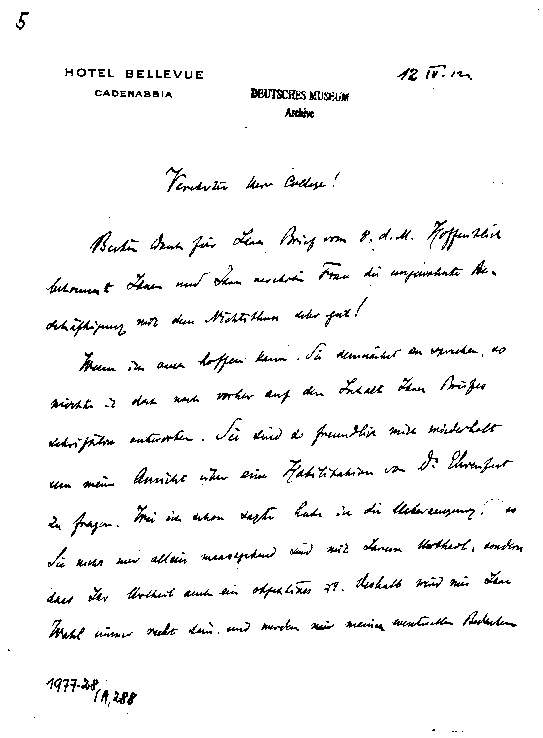 5
HOTEL BELLEVUE
CADENABBIA
12 IV. 12.
DEUTSCHES MUSEUM
Archive
Verehrter Herr College!
Besten Dank für Ihren Brief vom 8. d. M. Hoffentlich
bekommt Ihnen und Ihrer verehrten Frau die ungewohnte Be-
schäftigung mit dem Nichtsthun sehr gut!
Wenn ich auch hoffen kann, Sie demnächst zu sprechen, so
möchte ich doch noch vorher auf den Inhalt Ihres Briefes
schriftlich antworten. Sie sind so freundlich mich wiederholt
um meine Ansicht über eine Habilitation von Dr. Ehrenfest
zu fragen. Wie ich schon sagte habe ich die Ueberzeugung,
Sie nicht nur allein maassgebend sind mit Ihrem Urtheil, sondern
dass Ihr Urtheil auch ein objektives ist. Deshalb wird mir Ihre
Wahl immer recht sein, und werden meine eventuellen Bedenken
1977-28
/A, 288